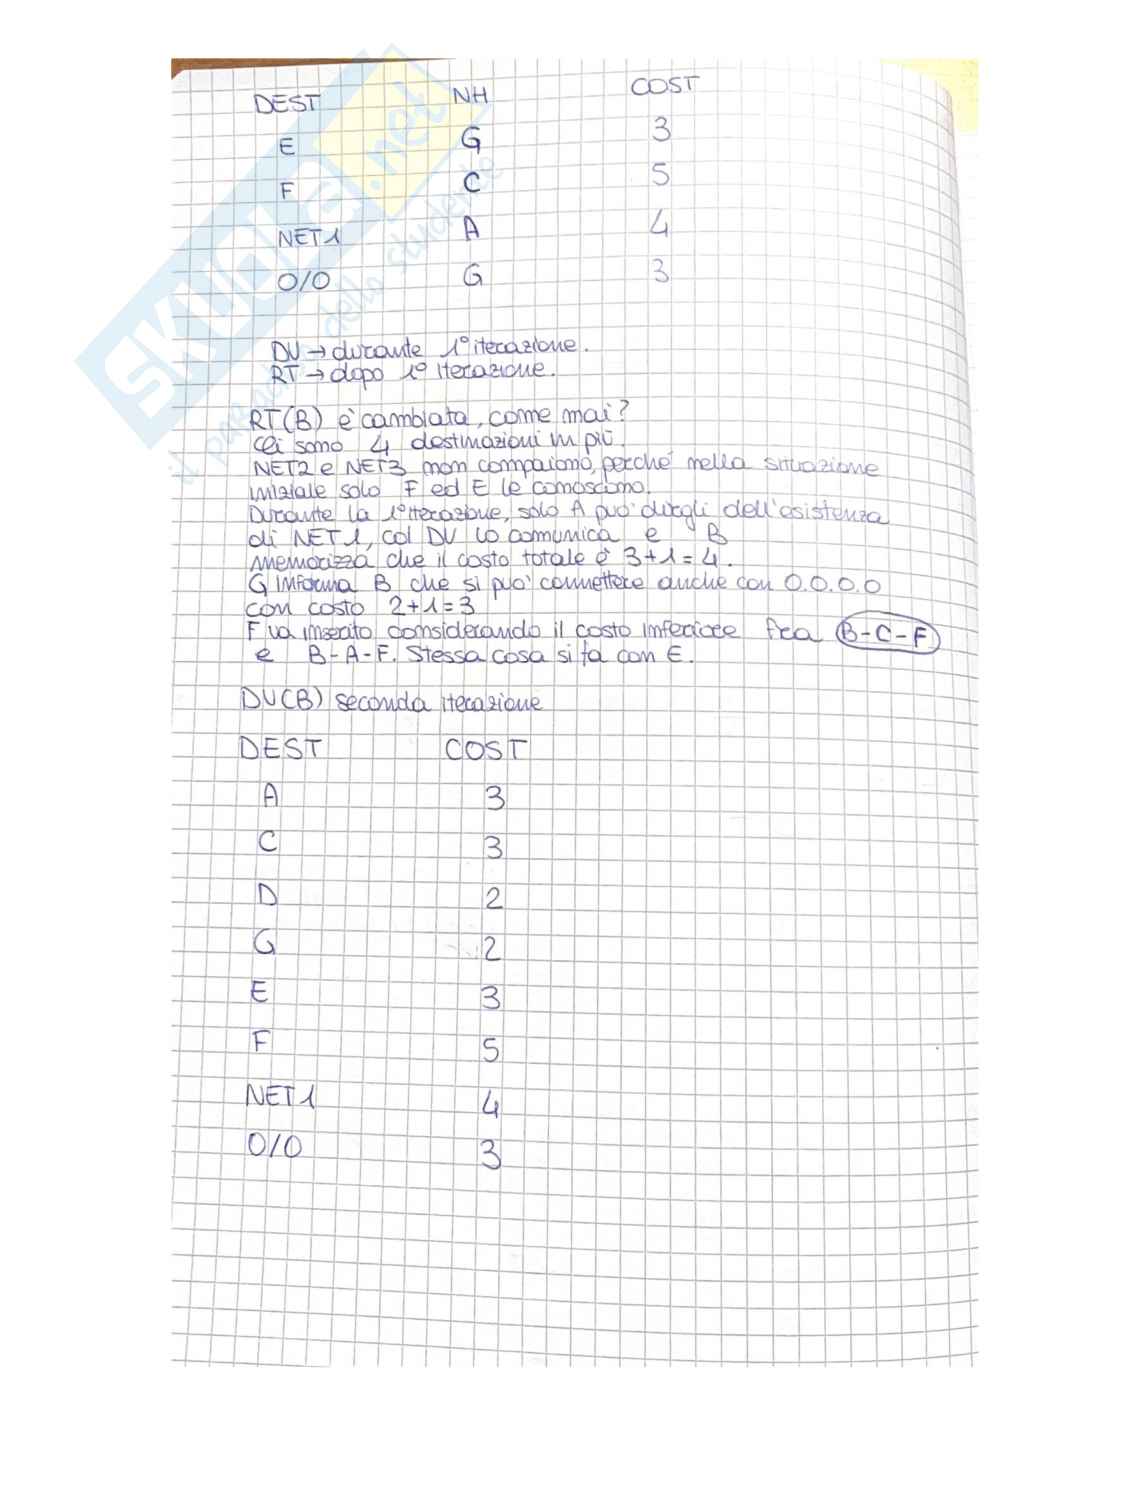 DEST NH COST
E G 3
F C 5
NET1 A 4
0/0 G 3
DV → durante 1° iterazione.
RT → dopo 1° iterazione.
RT(B) è cambiata, come mai?
Ci sono 4 destinazioni in più.
NET2 e NET3 non compaiono, perché nella situazione
iniziale solo F ed E le conoscono.
Durante la 1° iterazione, solo A può dirgli dell'esistenza
di NET1, col DV lo comunica e B
memorizza che il costo totale è 3+1=4.
G informa B che si può connettere anche con 0.0.0.0
con costo 2+1=3
F va inserito considerando il costo inferiore fra B-C-F
e B-A-F. Stessa cosa si fa con E.
DV(B) seconda iterazione
DEST COST
A 3
C 3
D 2
G 2
E 3
F 5
NET1 4
0/0 3
SKUOLA.net
il paradiso dello studente